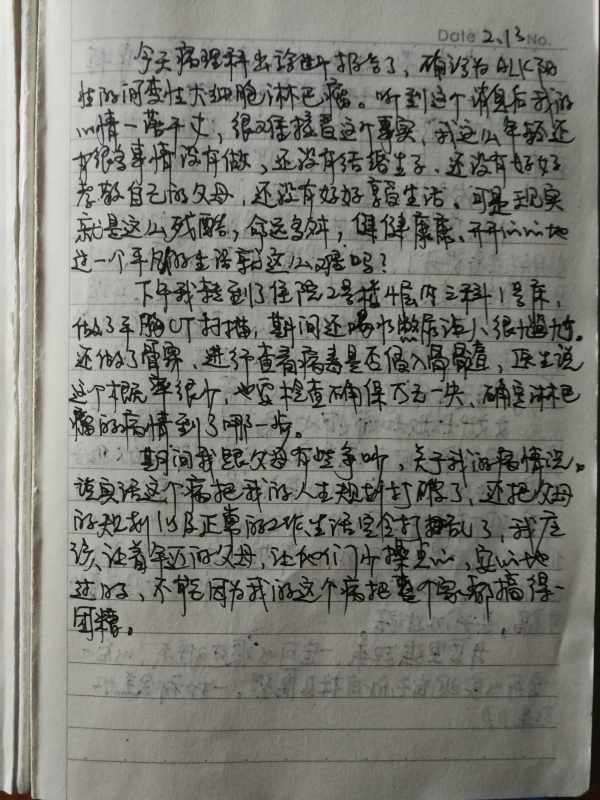 Date 2.13 No.
今天病理科出诊断报告了，确诊为ALK阳
性的间变性大细胞淋巴瘤。听到这个消息后我的
心情一落千丈，很难接受这个事实，我这么年轻还
有很多事情没有做、还没有结婚生子、还没有好好
孝敬自己的父母，还没有好好享受生活。可是现实
就是这么残酷，命运多舛，健健康康、开开心心地
过一个平凡的生活就这么难吗？
下午我转到了住院2号楼4层内三科1号床，
做了平胸CT扫描，期间还喝水憋尿 很尴尬。
还做了骨穿，进行查看病毒是否侵入骨骼里，医生说
这个概率很小，也要检查确保万无一失，确定淋巴
瘤的病情到了哪一步。
期间我跟父母有些争吵，关于我的病情说。
说实话这个病把我的人生规划打碎了，还把父母
的规划以及正常的工作、生活完全打乱了，我应
该让着年迈的父母，让他们少操点心，安心地
过的，不能因为我的这个病把整个家都搞得一
团糟。